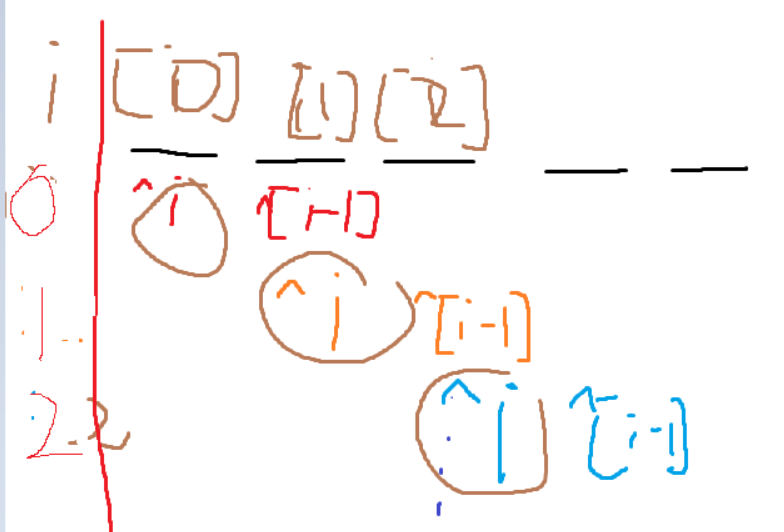 i [0] [1] [2]
0 ^i ^[i-1]
1 ^i ^[i-1]
2 2 ^i ^[i-1]